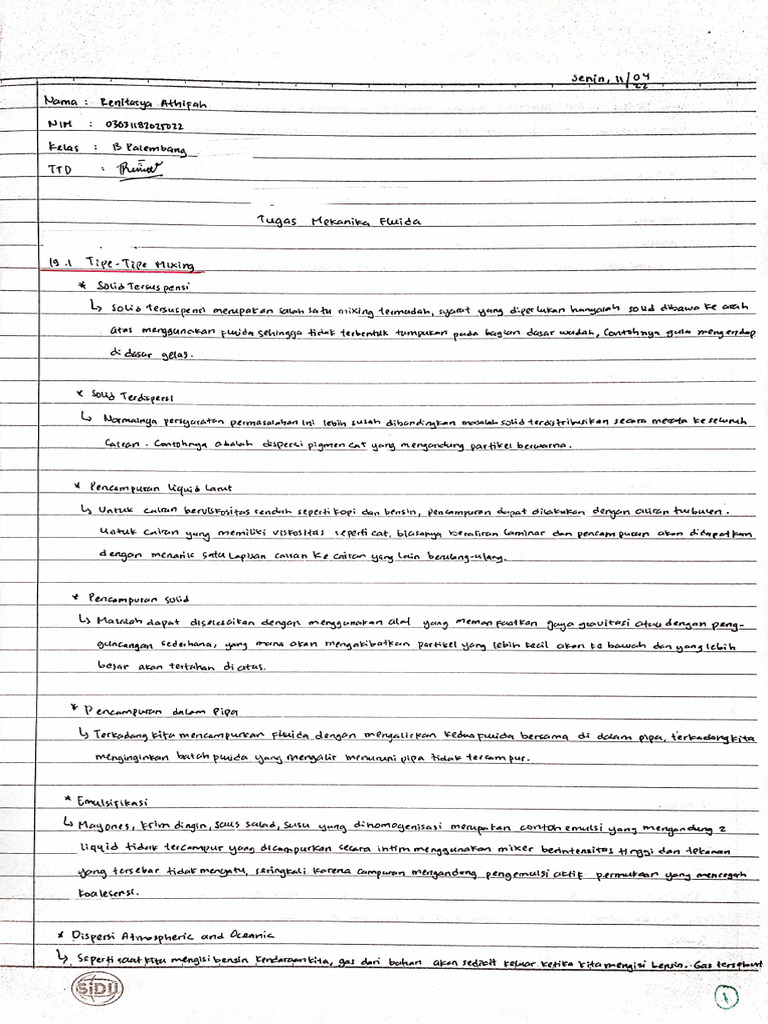 Senin, 11/04
22
Nama : Renitasya Athifah
NIM : 03031182025022
Kelas : B Palembang
TTD :
Tugas Mekanika Fluida
19.1 Tipe-Tipe Mixing
* Solid Tersuspensi
↳ Solid Tersuspensi merupakan salah satu mixing termudah, syarat yang diperlukan hanyalah solid dibawa ke arah
atas menggunakan fluida sehingga tidak terbentuk tumpukan pada bagian dasar wadah, Contohnya gula mengendap
di dasar gelas.
* Solid Terdispersi
↳ Normalnya persyaratan permasalahan ini lebih susah dibandingkan masalah solid terdistribusikan secara merata ke seluruh
Cairan. Contohnya adalah dispersi pigmen cat yang mengandung partikel berwarna.
* Pencampuran liquid larut
↳ Untuk cairan berviskositas rendah seperti kopi dan bensin, pencampuran dapat dilakukan dengan aliran turbulen.
Untuk cairan yang memiliki viskositas seperti cat, biasanya beraliran laminar dan pencampuran akan didapatkan
dengan menarik satu lapisan cairan ke cairan yang lain berulang-ulang.
* Pencampuran solid
↳ Masalah dapat diselesaikan dengan menggunakan alat yang memanfaatkan gaya gravitasi atau dengan peng-
guncangan sederhana, yang mana akan mengakibatkan partikel yang lebih kecil akan ke bawah dan yang lebih
besar akan tertahan di atas.
* Pencampuran dalam Pipa
↳ Terkadang kita mencampurkan fluida dengan mengalirkan kedua fluida bersama di dalam pipa, terkadang kita
menginginkan batch fluida yang mengalir menuruni pipa tidak tercampur.
* Emulsifikasi
↳ Mayones, krim dingin, saus salad, susu yang dihomogenisasi merupakan contoh emulsi yang mengandung 2
liquid tidak tercampur yang dicampurkan secara intim menggunakan mixer berintensitas tinggi dan tekanan
yang tersebar tidak menyatu, seringkali karena campuran mengandung pengemulsi aktif permukaan yang mencegah
koalesensi.
* Dispersi Atmospheric and Oceanic
↳ Seperti saat kita mengisi bensin kendaraan kita, gas dari bahan akan sedikit keluar ketika kita mengisi bensin. Gas tersebut
SIDU
1